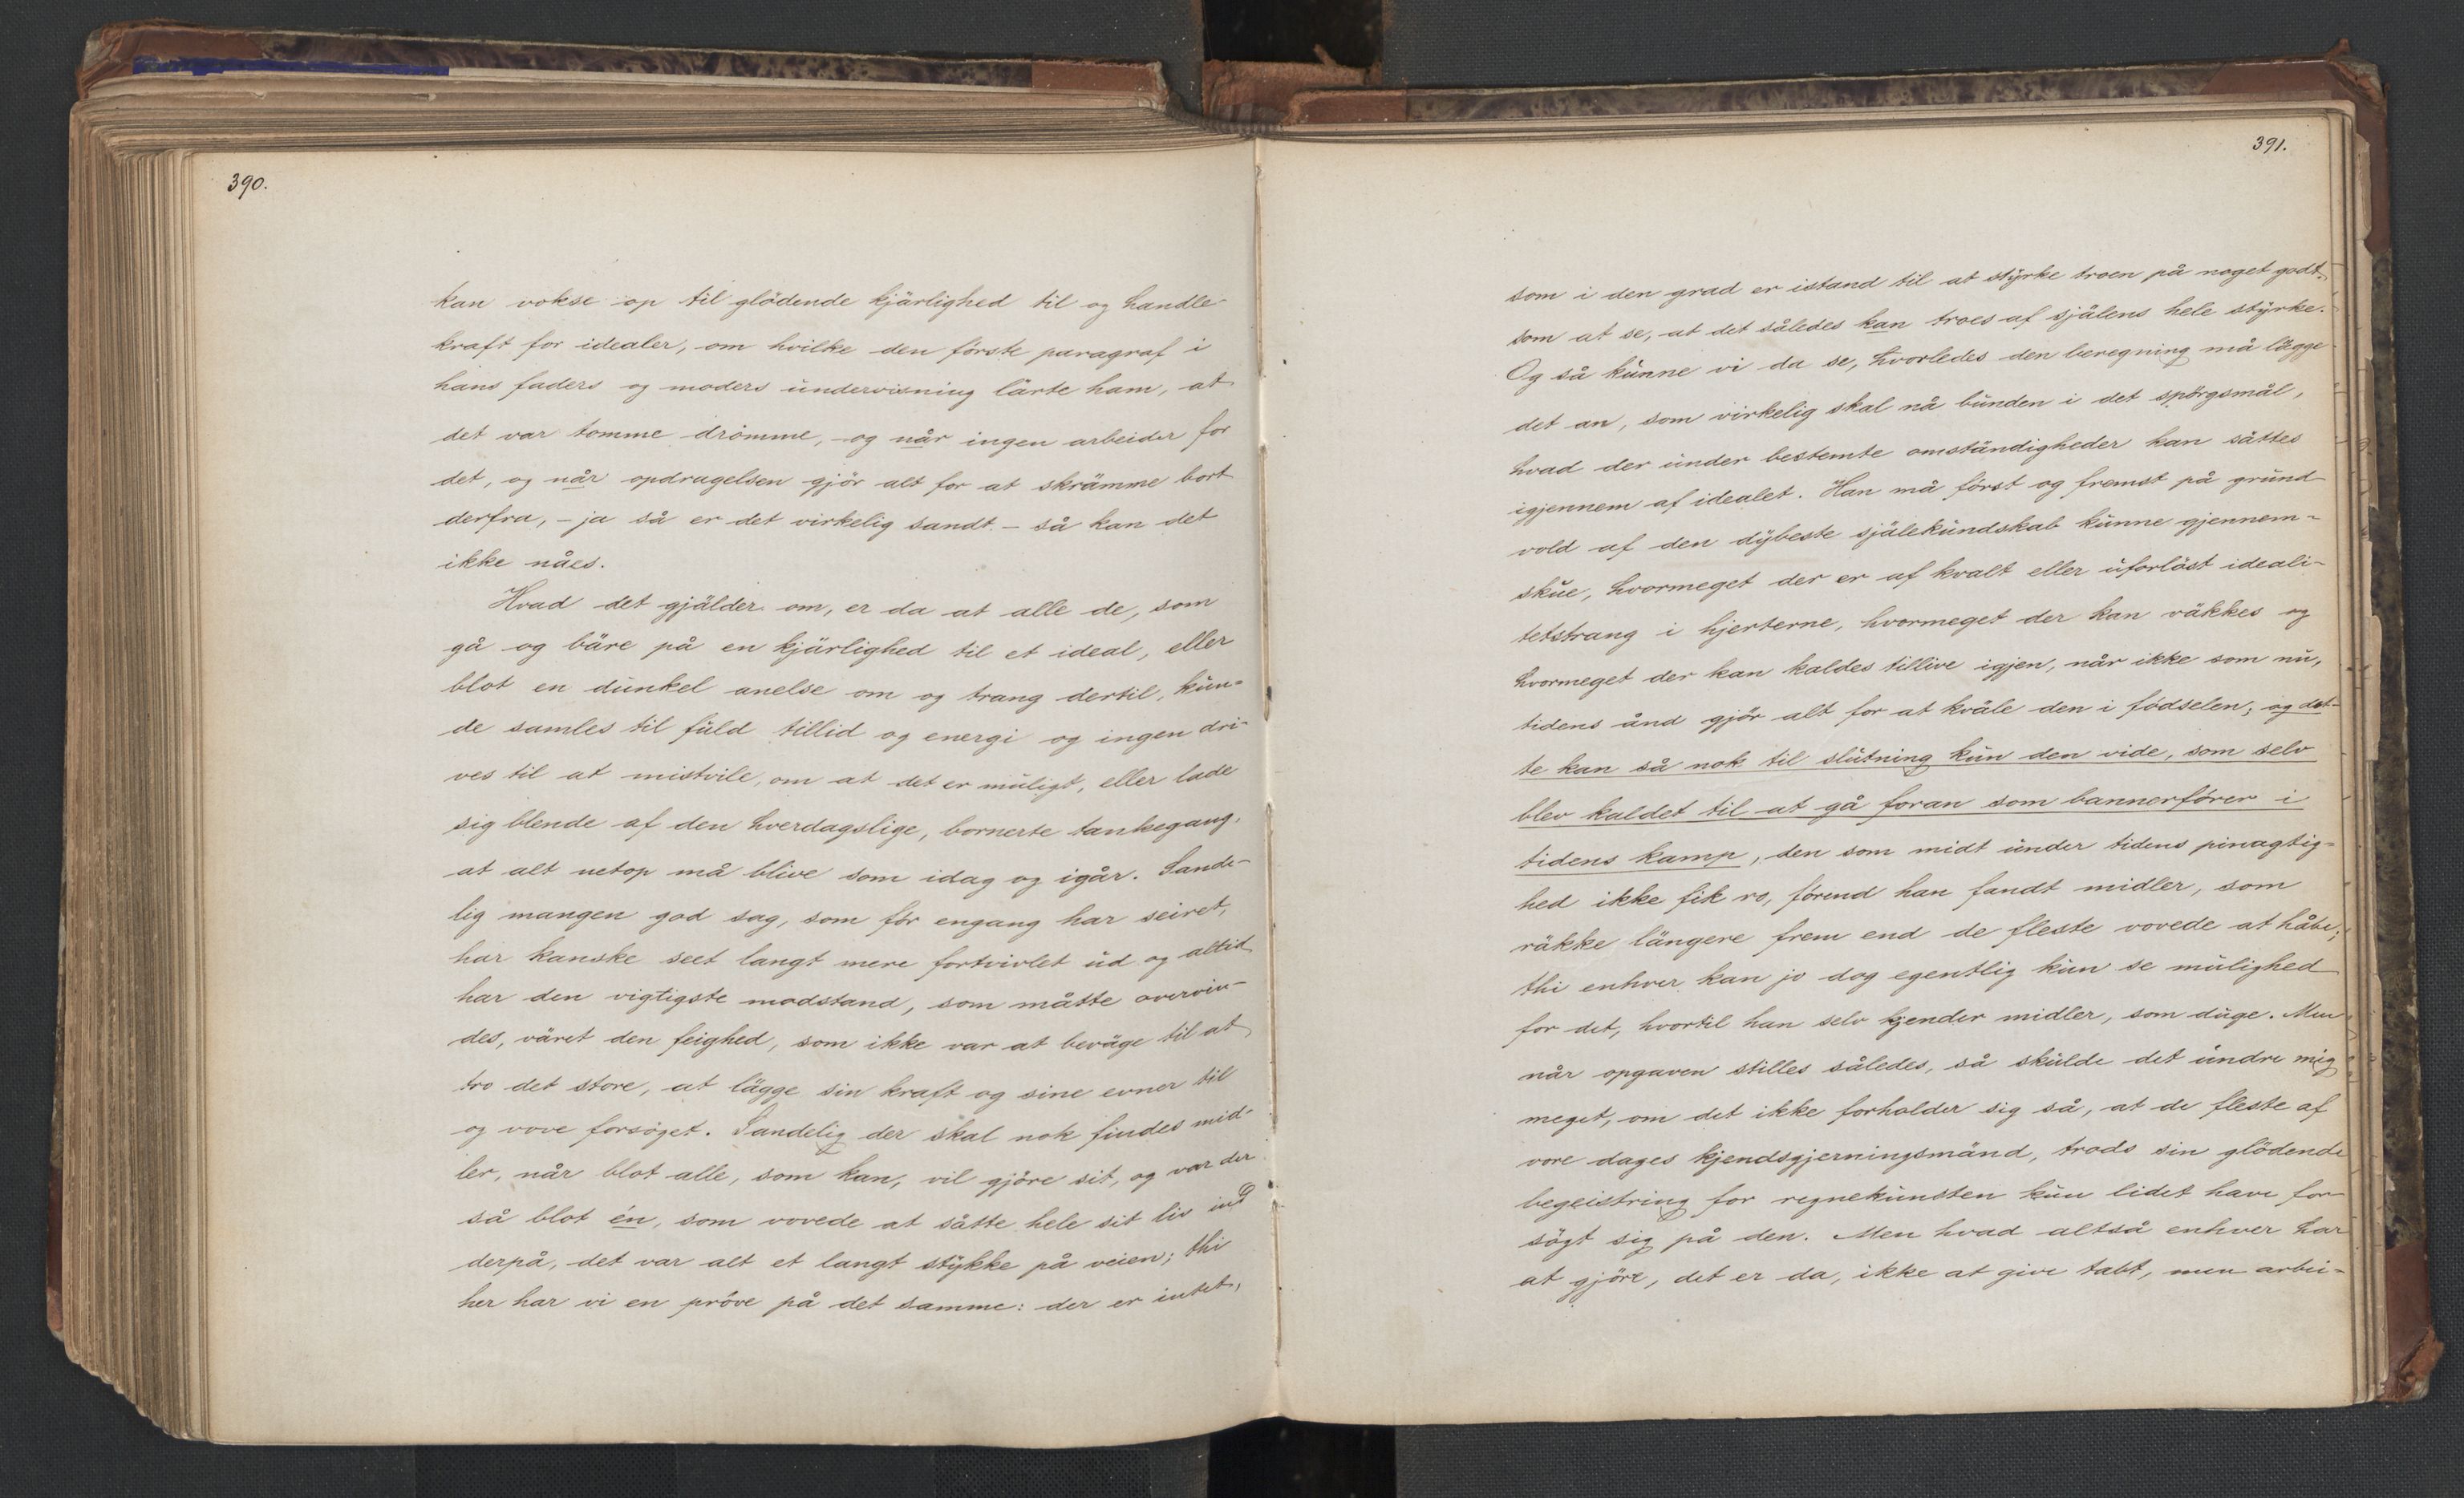 390.
kan vokse op til glödende kjärlighed til og handle-
kraft for idealer, om hvilke den förste paragraf i
hans faders og moders undervisning lärte ham, at
det var tomme drömme, - og når ingen arbeider for
det, og når opdragelsen gjör alt for at skrämme bort
derfra, - ja så er det virkelig sandt - så kan det
ikke nåes.
Hvad det gjälder om, er da at alle de, som
gå og bäre på en kjärlighed til et ideal, eller
blot en dunkel anelse om og trang dertil, kun-
de samles til fuld tillid og energi og ingen dri-
ves til at mistvile, om at det er muligt, eller lade
sig blende af den hverdagslige, bornerte tankegang,
at alt netop må blive som idag og igår. Sande-
lig mangen god sag, som för engang har seiret,
har kanske seet langt mere fortvivlet ud og altid
har den vigtigste modstand, som måtte overvin-
des, väret den feighed, som ikke var at beväge til at
tro det store, at lägge sin kraft og sine evner til
og vove forsöget. Sandelig der skal nok findes mid-
ler, når blot alle, som kan, vil gjöre sit, og var der
så blot én, som vovede at sätte hele sit liv ind
derpå, det var alt et langt stykke på veien; thi
her har vi en pröve på det samme: der er intet,
391.
som i den grad er istand til at styrke troen på noget godt,
som at se, at det således kan troes af själens hele styrke.
Og så kunne vi da se, hvorledes den beregning må lägge
det an, som virkelig skal nå bunden i det spörgsmål,
hvad der under bestemte omständigheder kan sättes
igjennem af idealet. Han må först og fremst på grund-
vold af den dybeste själekundskab kunne gjennem-
skue, hvormeget der er af kvalt eller uforlöst ideali-
tetstrang i hjerterne, hvormeget der kan väkkes og
hvormeget der kan kaldes tillive igjen, når ikke som nu,
tidens ånd gjör alt for at kväle den i födselen; og det-
te kan så nok til slutning kun den vide, som selv
blev kaldet til at gå foran som bannerförer i
tidens kamp, den som midt under tidens pinagtig-
hed ikke fik ro, förend han fandt midler, som
räkke längere frem end de fleste vovede at håbe;
thi enhver kan jo dog egentlig kun se mulighed
for det, hvortil han selv kjender midler, som duge. Men
når opgaven stilles således, så skulde det undre mig
meget, om det ikke forholder sig så, at de fleste af
vore dages kjendsgjerningsmänd, trods sin glödende
begeistring for regnekunsten kun lidet have for-
sögt sig på den. Men hvad altså enhver har
at gjöre, det er da, ikke at give tabt, men arbei-